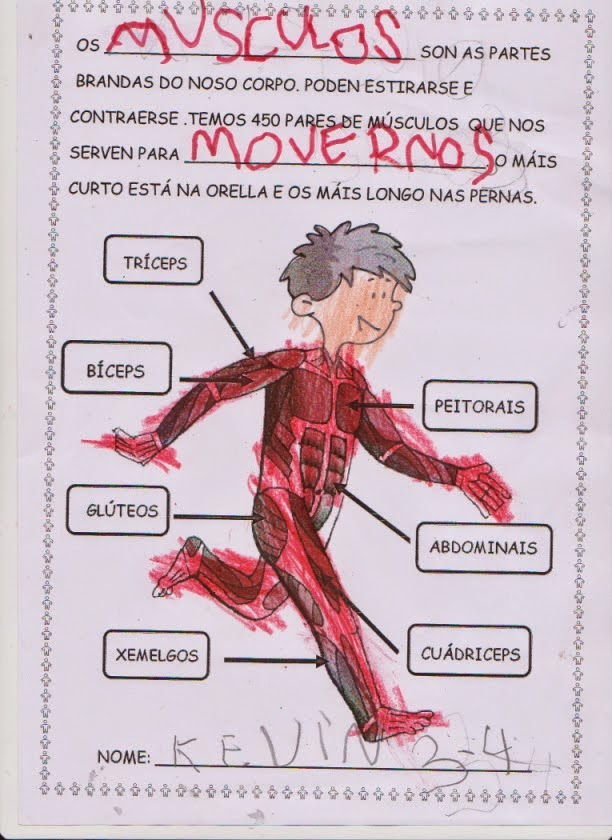 OS MUSCULOS SON AS PARTES
BRANDAS DO NOSO CORPO. PODEN ESTIRARSE E
CONTRAERSE .TEMOS 450 PARES DE MÚSCULOS QUE NOS
SERVEN PARA MOVERNOS O MÁIS
CURTO ESTÁ NA ORELLA E OS MÁIS LONGO NAS PERNAS.
TRÍCEPS
BÍCEPS
PEITORAIS
GLÚTEOS
ABDOMINAIS
XEMELGOS
CUÁDRICEPS
NOME: KEVIN 3-4